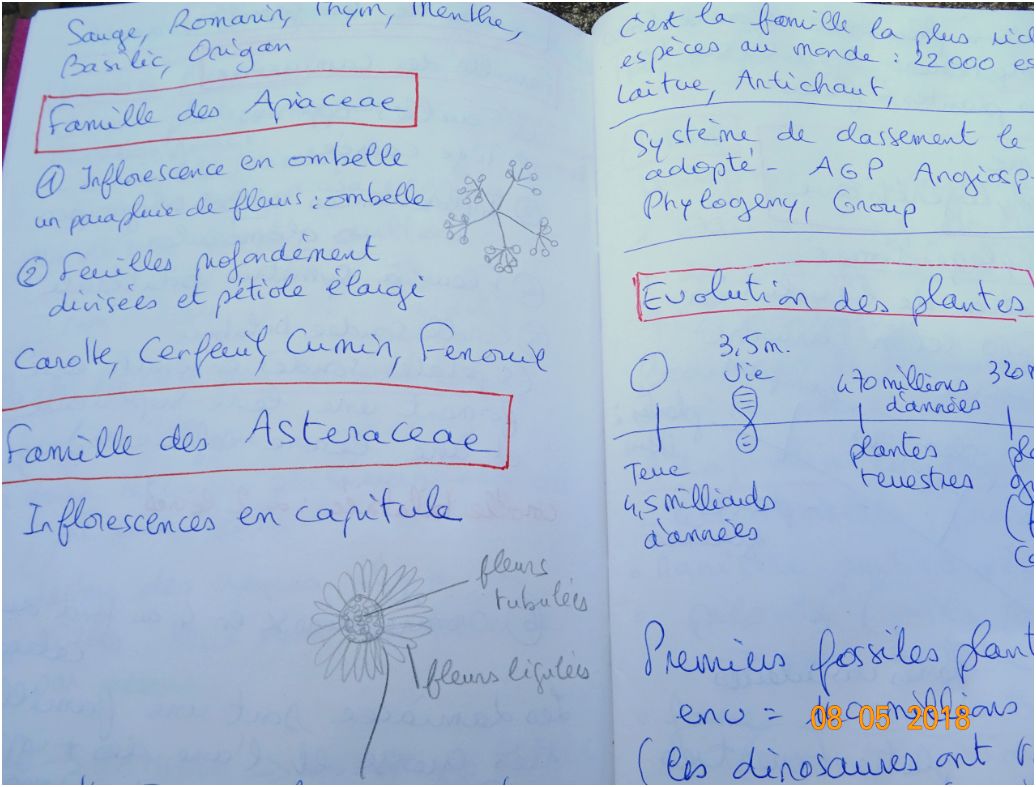 Sauge, Romarin, Thym, Menthe,
Basilic, Origan
Famille des Apiaceae
① Inflorescence en ombelle
un parapluie de fleurs : ombelle
② Feuilles profondément
divisées et pétiole élargi
Carotte, Cerfeuil, Cumin, Fenouil
Famille des Asteraceae
Inflorescences en capitule
fleurs
tubulées
fleurs ligulées
C'est la famille la plus
espèces au monde : 22 000
Laitue, Artichaut,
Système de classement le
adopté - AGP
Phylogeny, Group
Evolution des plantes
3,5 m.
Vie
470 millions
d'années
320
Terre
4,5 milliards
d'années
plantes
terrestres
Premiers fossiles
env = millions
(les dinosaures ont
08 05 2018